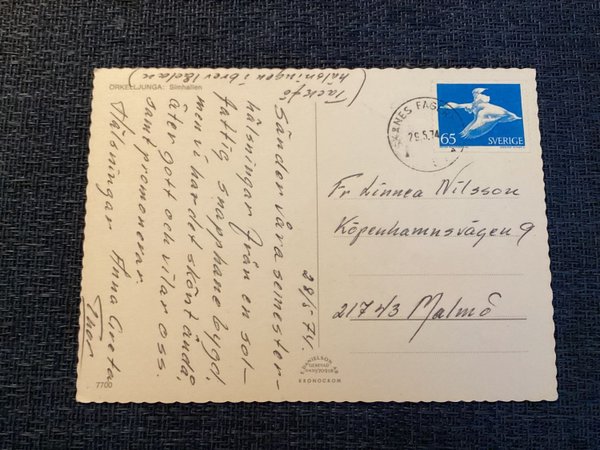 ÖRKELLJUNGA: Simhallen
(Tack fö
hälsningen i brevlådan)
28/5 74.
Sänder våra semester-
hälsningar från en sol-
fattig snapphanebygd,
men vi har det skönt ändå,
äter gott och vilar oss
samt promenerar.
Hälsningar Anna Greta
Thor
7700
SKÅNES FAG
29.5.74
65
SVERIGE
Fr Linnea Nilsson
Köpenhamnsvägen 9
217 43 Malmö
F. DANIELSON
EKONOCROM